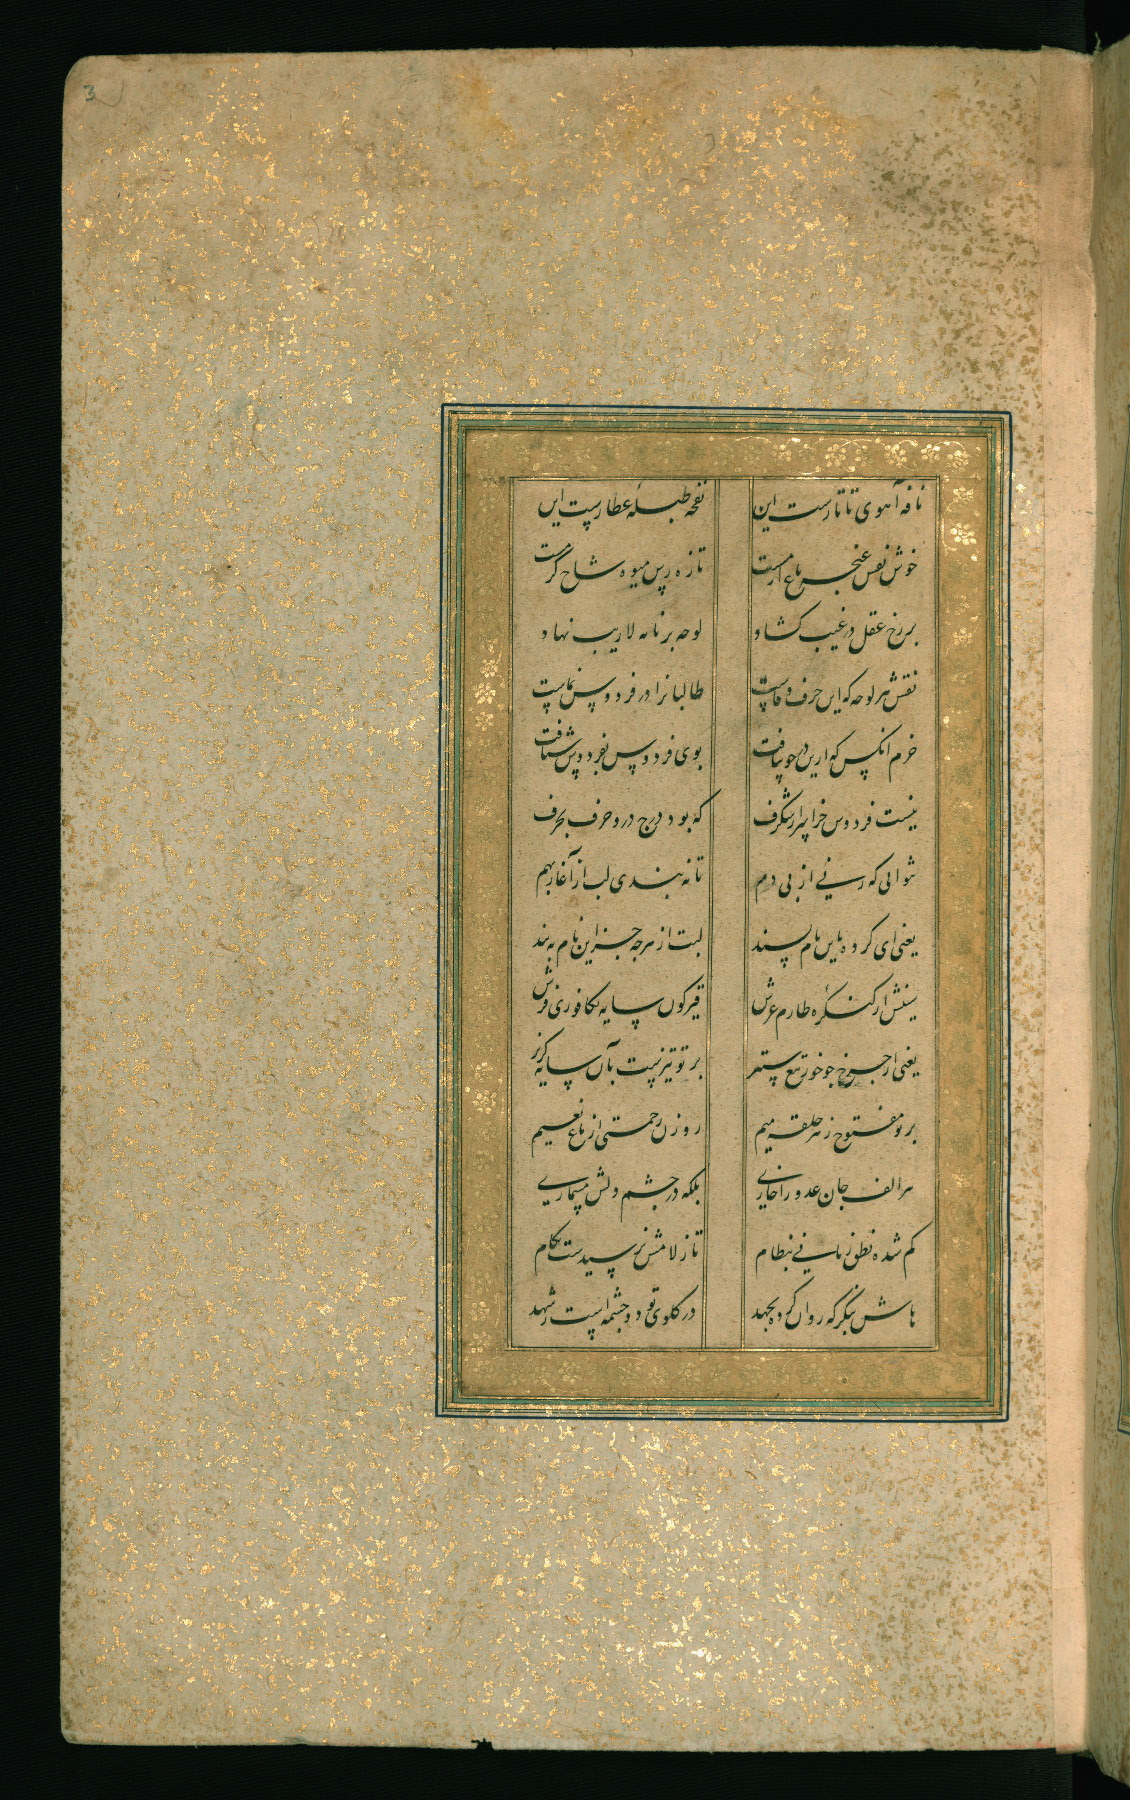 3
نافه آهوی تاتارست این نفحه طبلهٔ عطارست این
خوش نفس غنچه باغ ارمست تازه رس میوه شاخ کرمست
بر رخ عقل در غیب کشاد لوحه بر نامه لاریب نهاد
نقش هر لوحه که این حرف وفاست طالبانرا در فردوس نماست
خرم آنکس که ازین در چو بتافت بوی فردوس بفردوس شتافت
نیست فردوس خز اسرار شکرف که بود درج درو حرف بحرف
تا نه بندی لب از آغاز بهم
یعنی ای کرده باین نام پسند لبت از هرچه جز این نام به بند
سینش از کنکره طارم عرش قیرکون سایه کافوری فرش
یعنی از چرخ چو خور تیغ ستیز بر تو تیزست بآن سایه کریز
بر تو مفتوح ز هر حلقه میم روزن رحمتی از باغ نعیم
هر الف جان عدو را خاری بلکه در چشم دلش مسماری
کم شده نطق زبانی نظام تا ز لامش نرسیدست بکام
هاش بنکر که روان کرده بجهد در کلوی تو دو چشمه است ز شهد